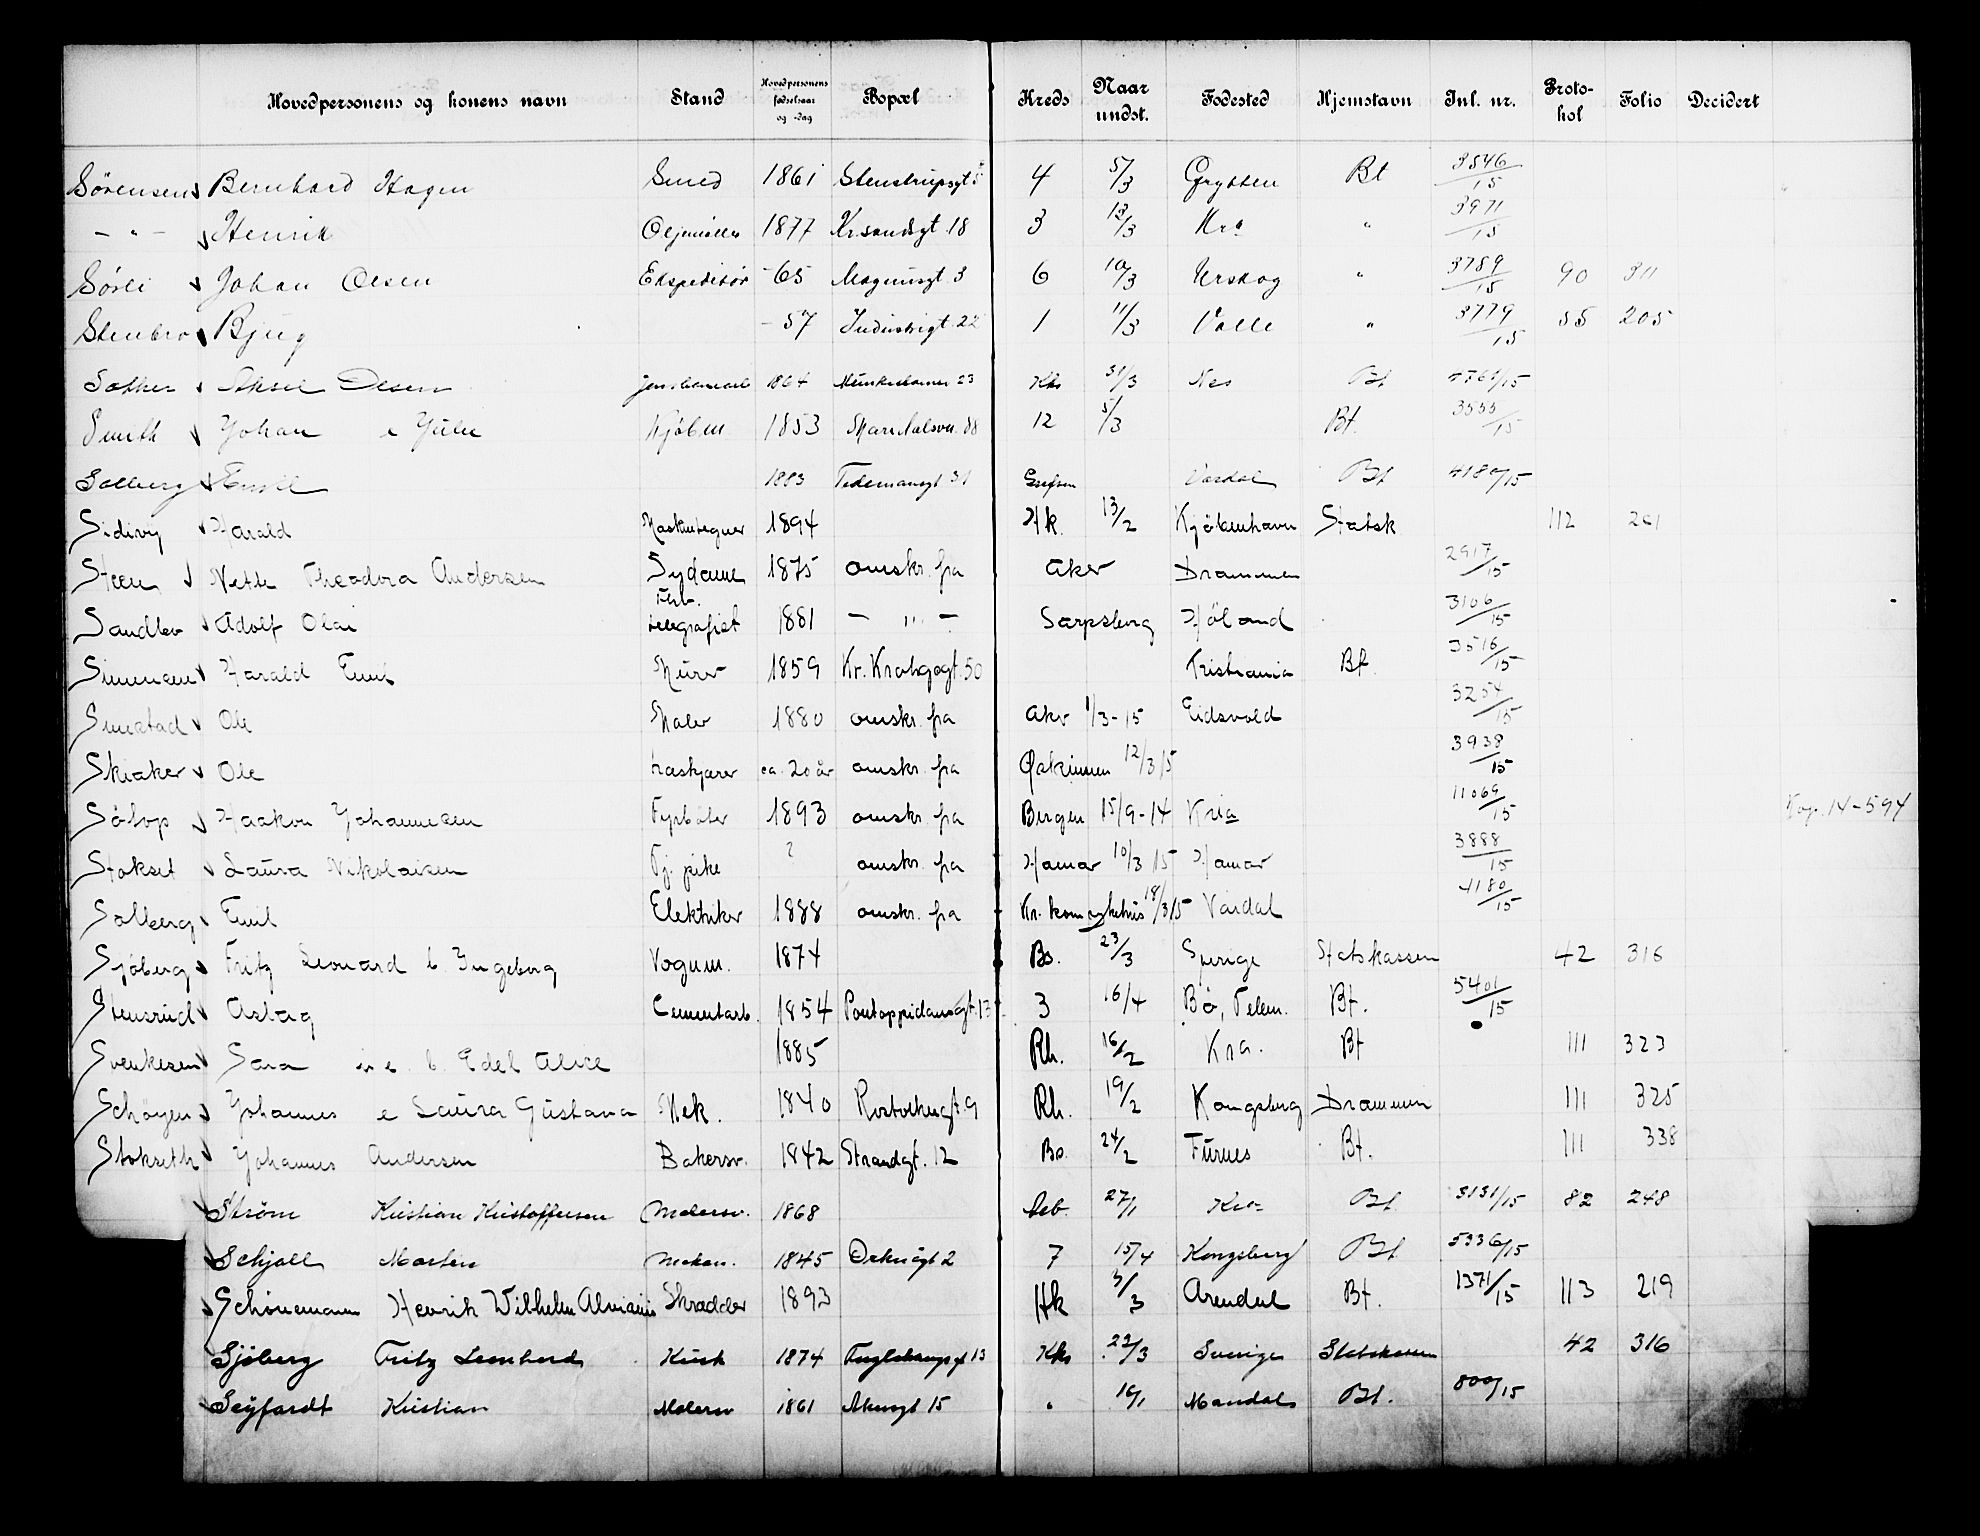 Hovedpersonens og konens navn Stand Hovedpersonens fødselsaar og -dag Bopæl Kreds Naar undst. Fødested Hjemstavn Jnl. nr. Protokol Folio Decidert
Sörensen Bernhard Hagen Smed 1861 Stenstrupsgt 5 4 5/3 Grytten Bt 3546/15
- " - Henrik 1877 Kr.sandsgt. 18 3 13/3 Kra " 3971/15
Sörli Johan Olsen Ekspeditör -65 Magnusgt. 3 6 10/3 Urskog " 3789/15 90 311
Stenbro Bjug -57 Industrigt. 22 1 11/3 Valle " 3779/15 55 205
Aksel Olsen 1864 23 Kks 31/3 Nes Bt
Smith Johan e Julie Kjöbm. 1853 Maridalsvn. 88 12 5/3 Bt. 3555/15
Solberg Emil 1883 Tidemansgt 31 Grefsen Vardal Bt 4180/15
Harald Maskintegner 1894 Hk. 13/2 Kjöbenhavn Statsk 112 261
Steen Theodora Andersen Sydame 1875 omskr. fra Aker Drammen 2917/15
Adolf Olai telegrafist 1881 - " - Sarpsborg Höland 3106/15
Harald Emil Murer 1859 Kr. Krohgsgt. 50 Kristiania Bt. 3516/15
Smestad Ole Maler 1880 omskr. fra Aker 1/3-15 Eidsvold 3254/15
Skiaker Ole Løskjører ca. 20 år omskr. fra 12/3 15 3938/15
Haakon Johannesen Fyrböter 1893 omskr. fra Bergen 15/9-14 Kria 11069/15 Kop. 14-594
Stokset Laura Nikolaisen Tj. pike ? omskr. fra Hamar 10/3 15 Hamar 3888/15
Solberg Emil Elektriker 1888 omskr. fra Kr. kom sykehus 18/3 15 Vardal 4180/15
Sjöberg Fritz Leonard b. Ingeborg Vognm. 1874 Bs. 23/3 Sverige Statskassen 42 316
Stensrud Aslag Cementarb. 1854 Pontoppidansgt. 13 3 16/4 Bö, Telem. Bt. 5401/15
Svenkesen Sara b. Edel Alice 1885 Rh. 16/2 Kra. Bt 111 323
Schöyen Johannes e Laura Gustava Mek. 1840 Rostockergt. 9 Rh. 19/2 Kongsberg Drammen 111 325
Stokseth Johannes Andersen Bakersv. 1842 Strandgt. 12 Bs. 24/2 Furnes Bt. 111 338
Ström Kristian Kristoffersen Malersv. 1868 27/1 Kra Bt 3131/15 82 248
Schjoll Morten Mekan. 1845 2 7 15/4 Kongsberg Bt 5336/15
Schönemann Henrik Wilhelm Skradder 1893 Hk 3/3 Arendal Bt. 1371/15 113 219
Sjöberg Fritz Leonhard Kusk 1874 13 Kks 22/3 Sverige Statskassen 42 316
Seyfardt Kristian Malersv 1861 Akersgt 15 " 16/1 Mandal Bt. 800/15